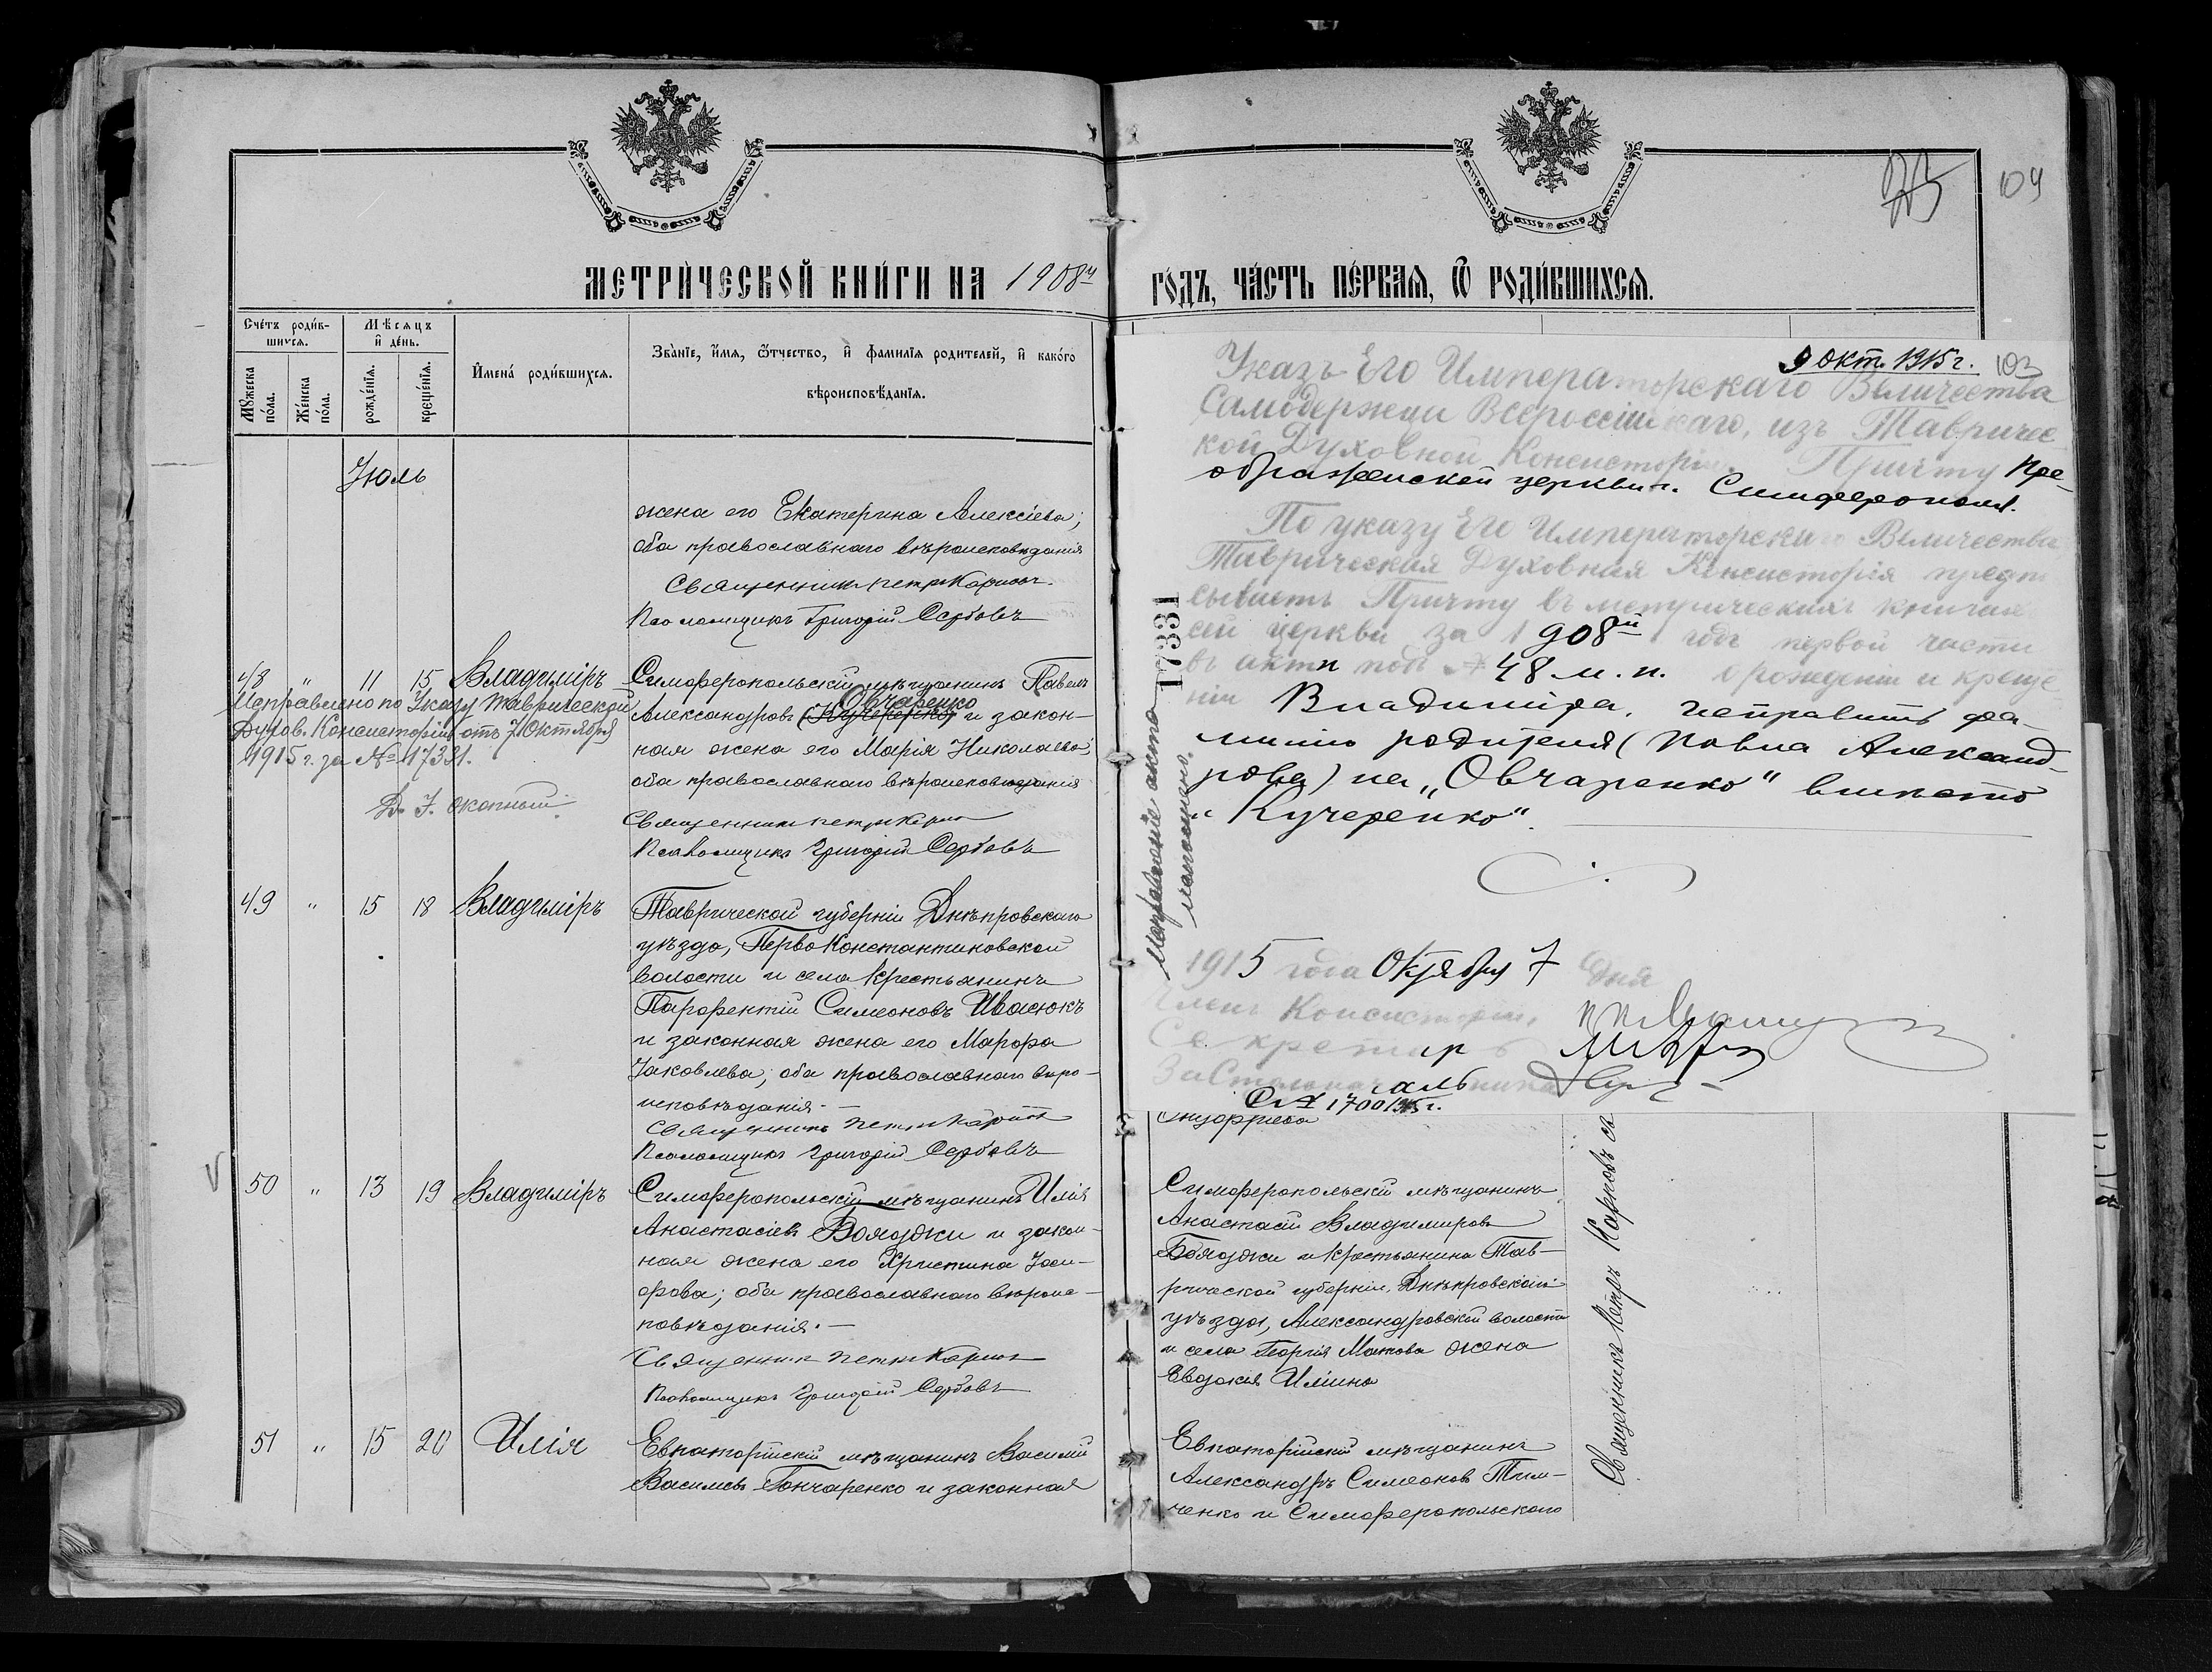 МЕТРИ́ЧЕСКОЙ КНИ́ГИ НА 1908й
Сче́тъ роди́в-
шихся.
Му́жеска
по́ла.
Же́нска
по́ла.
Мѣ́сяцъ
и҆ де́нь.
рожде́нїя.
креще́нїя.
И҆мена́ роди́вшихся.
Зва́нїе, и҆́мя, ѻ҆́тчество, и҆ фами́лїя роди́телей, и҆ како́го
вѣроисповѣ́данїя.
Іюль
жена его Екатерина Алексіева;
оба православнаго вѣроисповѣданія
Священникъ Петръ Карповъ
Псаломщикъ Григорій Сербовъ
48 " 11 15 Владиміръ
Симферопольскій мѣщанинъ Павелъ
Овчаренко
Александровъ (Кучеренко) и закон-
ная жена его Марія Николаева;
оба православнаго вѣроисповѣданія
Священникъ Петръ Карповъ
Псаломщикъ Григорій Сербовъ
Исправлено по Указу Таврической
Духов. Консисторіи отъ 7 Октября
1915 г. за № 17331.
49 " 15 18 Владиміръ
Таврической губерніи Днѣпровскаго
уѣзда, Перво Константиновской
волости и села крестьянинъ
Парфентій Симеоновъ Ивасюкъ
и законная жена его Марфа
Іаковлева; оба православнаго вѣро-
исповѣданія.—
Священникъ Петръ Карповъ
Псаломщикъ Григорій Сербовъ
V 50 " 13 19 Владиміръ
Симферопольскій мѣщанинъ Илія
Анастасіевъ Бояджи и закон-
ная жена его Христина Іоси-
фова; оба православнаго вѣроис-
повѣданія.—
Священникъ Петръ Карповъ
Псаломщикъ Григорій Сербовъ
51 " 15 20 Илія
Евпаторійскій мѣщанинъ Василій
Васильевъ Гончаренко и законная
ГО́ДЪ, ЧА́СТЬ ПЕ́РВАЯ, Ѽ РОДИ́ВШИХСЯ.
104
9 Окт. 1915 г. 103
Указъ Его Императорскаго Величества
Самодержца Всероссійскаго, изъ Тавричес
кой Духовной Консисторіи. Причту Пре-
ображенской церкви г. Симферополя.
По указу Его Императорскаго Величества
Таврическая Духовная Консисторія предпи
сываетъ Причту въ метрическихъ книгахъ
сей церкви за 1908й годъ первой части
въ актѣ подъ № 48 м. п. о рожденіи и креще
ніи Владиміра, исправить фа-
милію родителя (Павла Александ-
рова) на „Овчаренко" вмѣсто
„Кучеренко".
17331
Исправленіе акта
1915 года Октября 7 дня
Членъ Консисторіи,
Секретарь
За Столоначальника
Ст. 1700 1915 г.
Симферопольскій мѣщанинъ
Анастасій Владиміровъ
Бояджи и крестьянина Тав-
рической губерніи, Днѣпровскаго
уѣзда, Александровской волости
и села Георгія Матова жена
Евдокія Иліина
Евпаторійскій мѣщанинъ
Александръ Симеоновъ Тим-
ченко и Симферопольскаго
Священникъ Петръ Карповъ съ